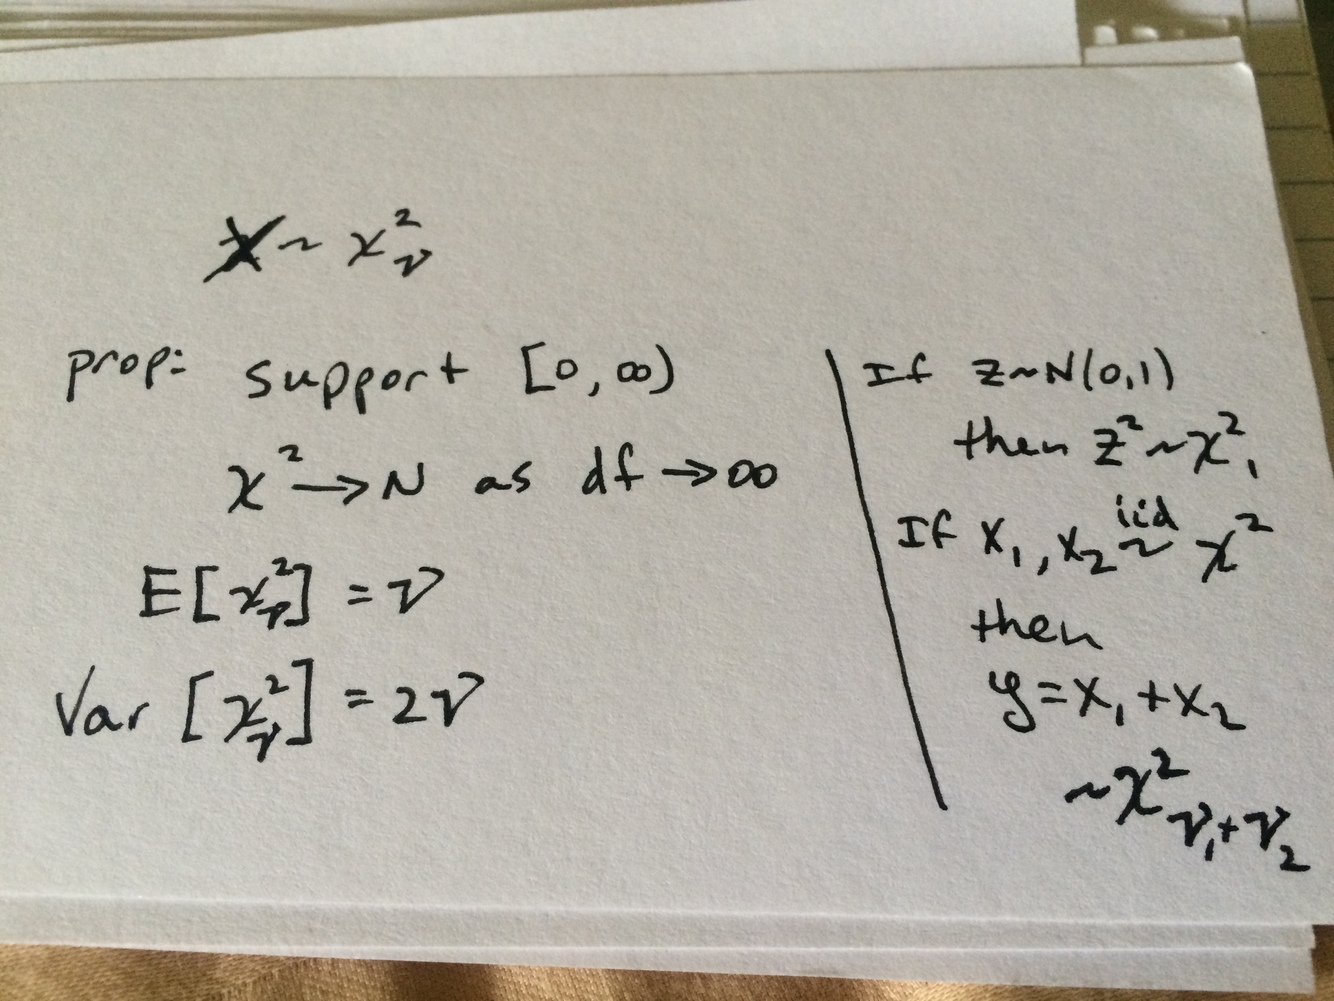 X ~ χ²ᵥ
prop: support [0, ∞)
χ² → N as df → ∞
E[χ²ᵥ] = ν
Var[χ²ᵥ] = 2ν
If Z~N(0,1)
then Z² ~ χ²₁
If X₁, X₂ iid ~ χ²
then
y = X₁ + X₂
~ χ²ᵥ₁₊ᵥ₂